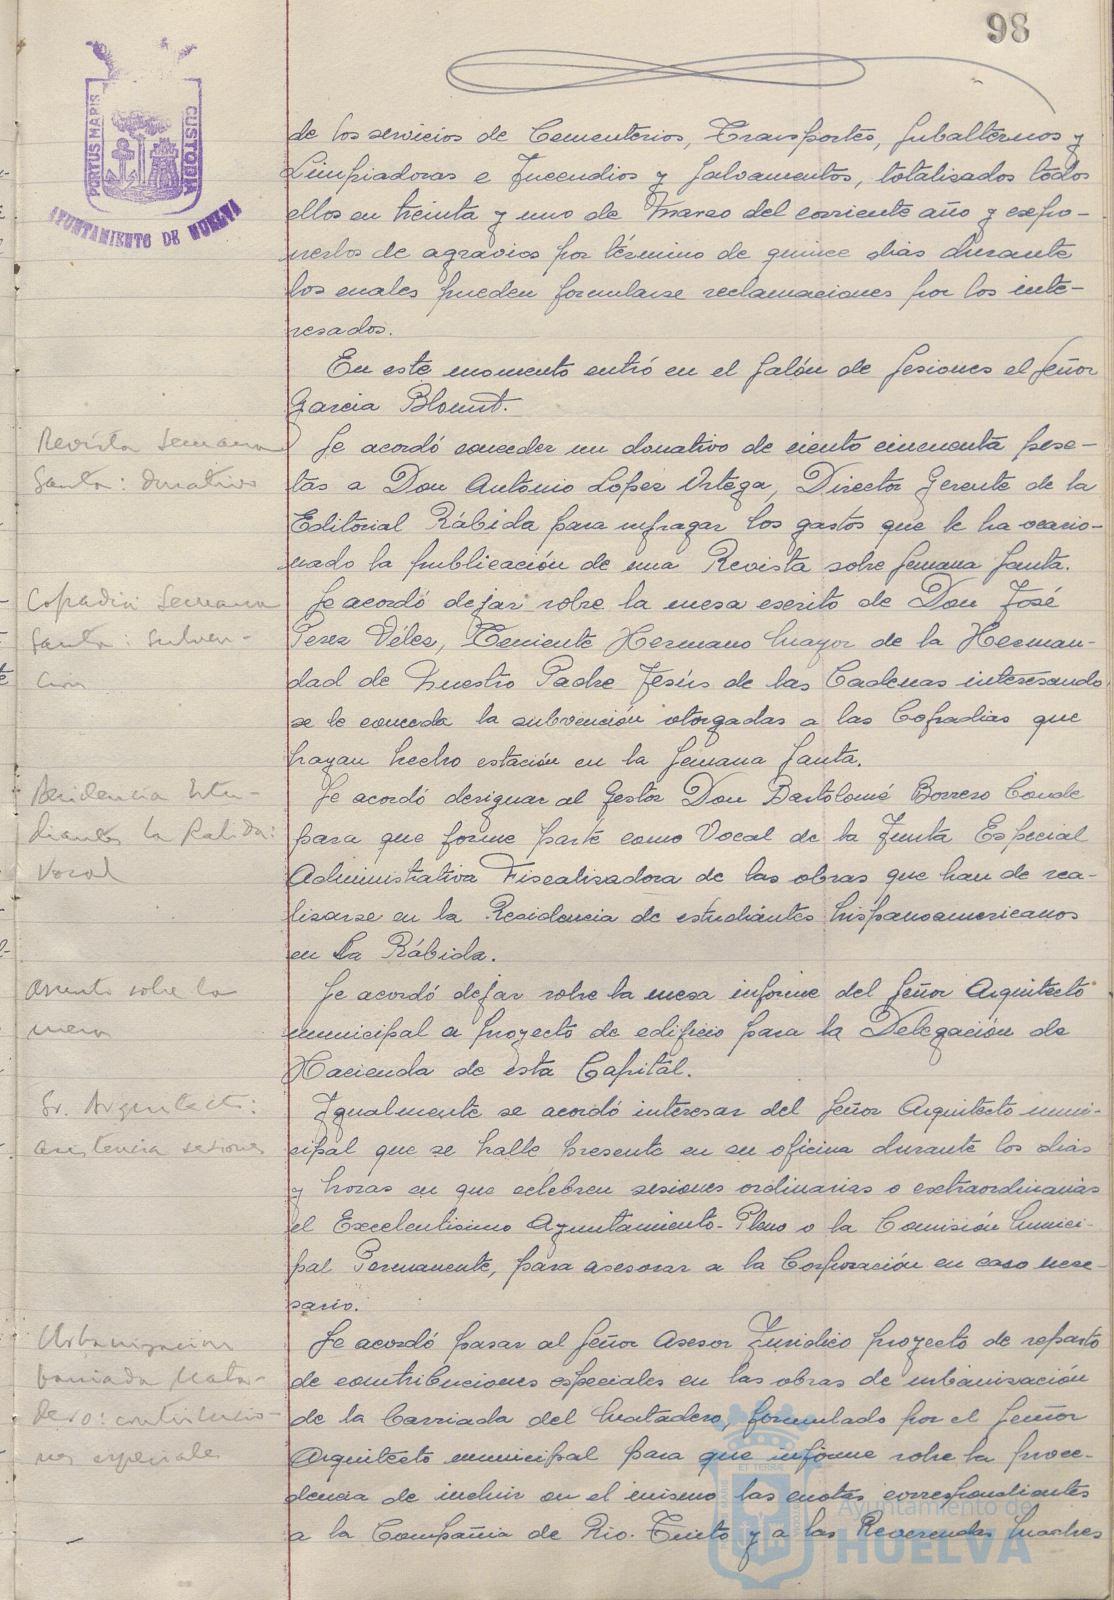 98
PORTUS MARIS
CUSTODIA
AYUNTAMIENTO DE HUELVA
de los servicios de Cementerios, Transportes, Subalternos y
Limpiadoras e Incendios y Salvamentos, totalizados todos
ellos en treinta y uno de Marzo del corriente año y expo-
nerlos de agravios por término de quince dias durante
los cuales pueden formularse reclamaciones por los inte-
resados.
En este momento entró en el Salón de Sesiones el Señor
Garcia Blount.
Revista Semana
Santa: donativo
Se acordó conceder un donativo de ciento cincuenta pese-
tas a Don Antonio López Ortega, Director Gerente de la
Editorial Rábida para sufragar los gastos que le ha ocasio-
nado la publicación de una Revista sobre Semana Santa.
Cofradia Semana
Santa: Subven-
ción
Se acordó dejar sobre la mesa escrito de Don José
Perez Vélez, Teniente Hermano Mayor de la Herman-
dad de Nuestro Padre Jesús de las Cadenas interesando
se le conceda la subvención otorgadas a las Cofradias que
hayan hecho estación en la Semana Santa.
Residencia Estu-
diantes la Rabida:
Vocal
Se acordó designar al Gestor Don Bartolomé Borrero Conde
para que forme parte como Vocal de la Junta Especial
Administrativa Fiscalizadora de las obras que han de rea-
lizarse en la Residencia de estudiantes hispanoamericanos
en La Rábida.
Asunto sobre la
mesa
Se acordó dejar sobre la mesa informe del Señor Arquitecto
municipal a proyecto de edificio para la Delegación de
Hacienda de esta Capital.
Sr. Arquitecto:
asistencia sesiones
Igualmente se acordó interesar del Señor Arquitecto muni-
cipal que se halle presente en su oficina durante los dias
y horas en que celebren sesiones ordinarias o extraordinarias
el Excelentísimo Ayuntamiento-Pleno o la Comisión Munici-
pal Permanente, para asesorar a la Corporación en caso nece-
sario.
Urbanizacion
barriada Mata-
dero: contribucio-
nes especiales
Se acordó pasar al Señor Asesor Juridico proyecto de reparto
de contribuciones especiales en las obras de urbanización
de la barriada del Matadero, formulado por el Señor
Arquitecto municipal para que informe sobre la proce-
dencia de incluir en el mismo las cuotas correspondientes
a la Compañia de Rio-Tinto y a las Reverendas Madres
Ayuntamiento de
HUELVA